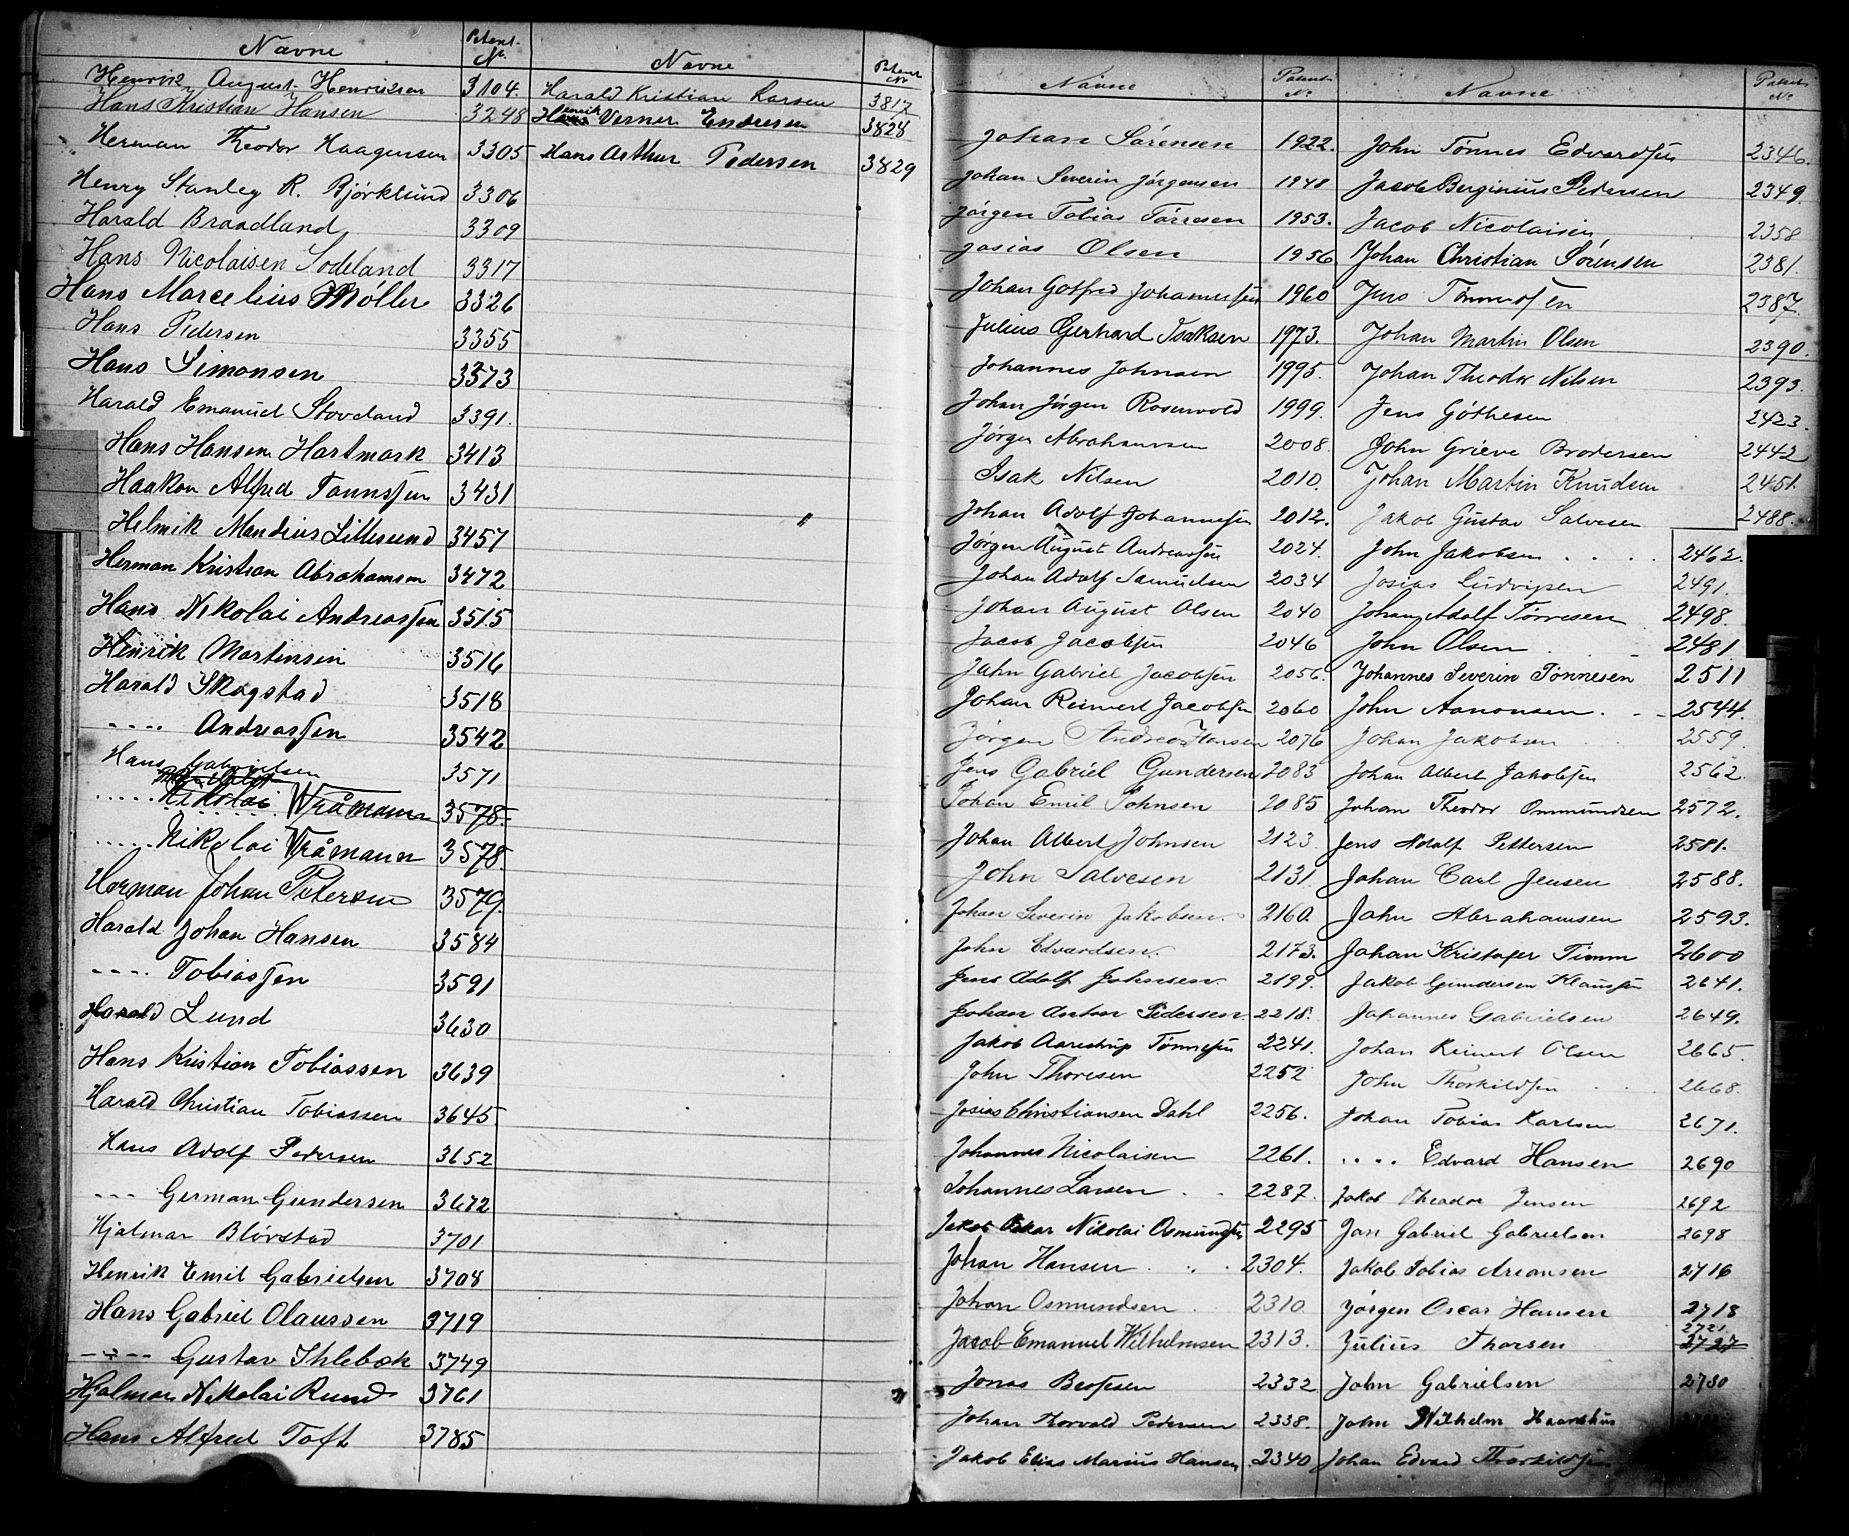 Navne Patent No.
Henrik August Henriksen 3104.
Hans Kristian Hansen 3248
Herman Theodor Haagensen 3305
Henry Stanley R. Bjørklund 3306
Harald Braadland 3309
Hans Nicolaisen Sodeland 3317
Hans Marcelius Møller 3326
Hans Pedersen 3355
Hans Simonsen 3373
Harald Emanuel Stoveland 3391.
Hans Hansen Hartmark 3413
Haakon Alfred Tønnesen 3431
Helmik Mandius Littesund 3457
Herman Kristian Abrahamsen 3472
Hans Nikolai Andreassen 3515
Henrik Martinsen 3516
Harald Skogstad 3518
---- Andreassen 3542
Hans Gabrielsen 3571
..... Nikolai Vråmann 3578.
..... Nikolai Vråmann 3578.
Herman Johan Petersen 3579.
Harald Johan Hansen 3584
---- Tobiassen 3591
Harald Lund 3630
Hans Kristian Tobiassen 3639
Harald Christian Tobiassen 3645
Hans Adolf Pedersen 3652
--- German Gundersen 3672
Hjalmar Blørstad 3701
Henrik Emil Gabrielsen 3708
Hans Gabriel Olaussen 3719
---- Gustav Ihlebæk 3749
Hjalmar Nikolai Rund 3761
Hans Alfred Toft 3785
Navne Patent No
Harald Kristian Larsen 3817
Henrik Verner Endresen 3828
Hans Arthur Pedersen 3829
Navne Patent No
Johan Sørensen 1922.
Johan Severin Jørgensen 1948
Jørgen Tobias Tørresen 1953.
Josias Olsen 1956
Johan Gotfred Johannessen 1960
Julius Gerhard Isaksen 1973.
Johannes Johnsen 1995.
Johan Jørgen Rosenvold 1999.
Jørgen Abrahamsen 2008.
Isak Nilsen 2010.
Johan Adolf Johannessen 2012.
Jørgen August Andreassen 2024.
Johan Adolf Samuelsen 2034
Johan August Olsen 2040
Jacob Jacobsen 2046
Jahn Gabriel Jacobsen 2056.
Johan Reinert Jacobsen 2060
Jørgen Andreas Hansen 2076
Jens Gabriel Gundersen 2083
Johan Emil Johnsen 2085
Johan Albert Johnsen 2123
John Salvesen 2131
Johan Severin Jakobsen. 2160.
John Edvardsen. 2173.
Jens Adolf Johnsen. 2199.
Johan Anton Pedersen. 2218.
Jakob Aarestrup Tønnesen 2241.
John Thoresen 2252
Josias Christiansen Dahl 2256.
Johannes Nicolaisen 2261.
Johannes Larsen . . 2287.
Jakob Oskar Nikolai Osmundsen 2295
Johan Hansen . . . 2304.
Johan Osmundsen 2310
Jacob Emanuel Wilhelmsen 2313.
Jonas Bentsen 2332
Johan Thorvald Pedersen 2338.
Jakob Elias Marius Hansen 2340
Navne Patent No
John Tønnes Edvardsen 2346.
Jacob Berginius Pedersen 2349.
Jacob Nicolaisen 2358
Johan Christian Sørensen 2381.
Jens Tønnessen 2387.
Johan Martin Olsen 2390.
Johan Theodor Nilsen 2393.
Jens Gøthesen 2423.
John Grieve Brodersen 2442
Johan Martin Knudsen 2451.
Jakob Gustav Salvesen 2488.
John Jakobsen . . . . 2462.
Josias Ludvigsen 2491.
Johan Adolf Tørresen 2498.
John Olsen . . . 2481
Johannes Severin Tønnesen 2511
John Aanonsen . . 2544.
Johan Jakobsen 2559.
Johan Albert Jakobsen 2562.
Johan Theodor Ommundsen 2572.
Jens Adolf Pettersen 2581.
Johan Carl Jensen 2588.
Jahn Abrahamsen 2593.
Johan Kristofer Timm 2600
Jakob Gundersen Klaussen 2641.
Johannes Gabrielsen 2649.
Johan Reinert Olsen 2665.
John Thorkildsen 2668.
Johan Tobias Karlsen 2671.
.... Edvard Hansen 2690
Jakob Theodor Jensen 2692
Jan Gabriel Gabrielsen 2698
Jakob Tobias Areansen 2716
Jørgen Oscar Hansen 2718
Julius Thorsen 2721 2727
John Gabrielsen 2730
John Wilhelm Haanshus
Johan Edvard Thorkildsen